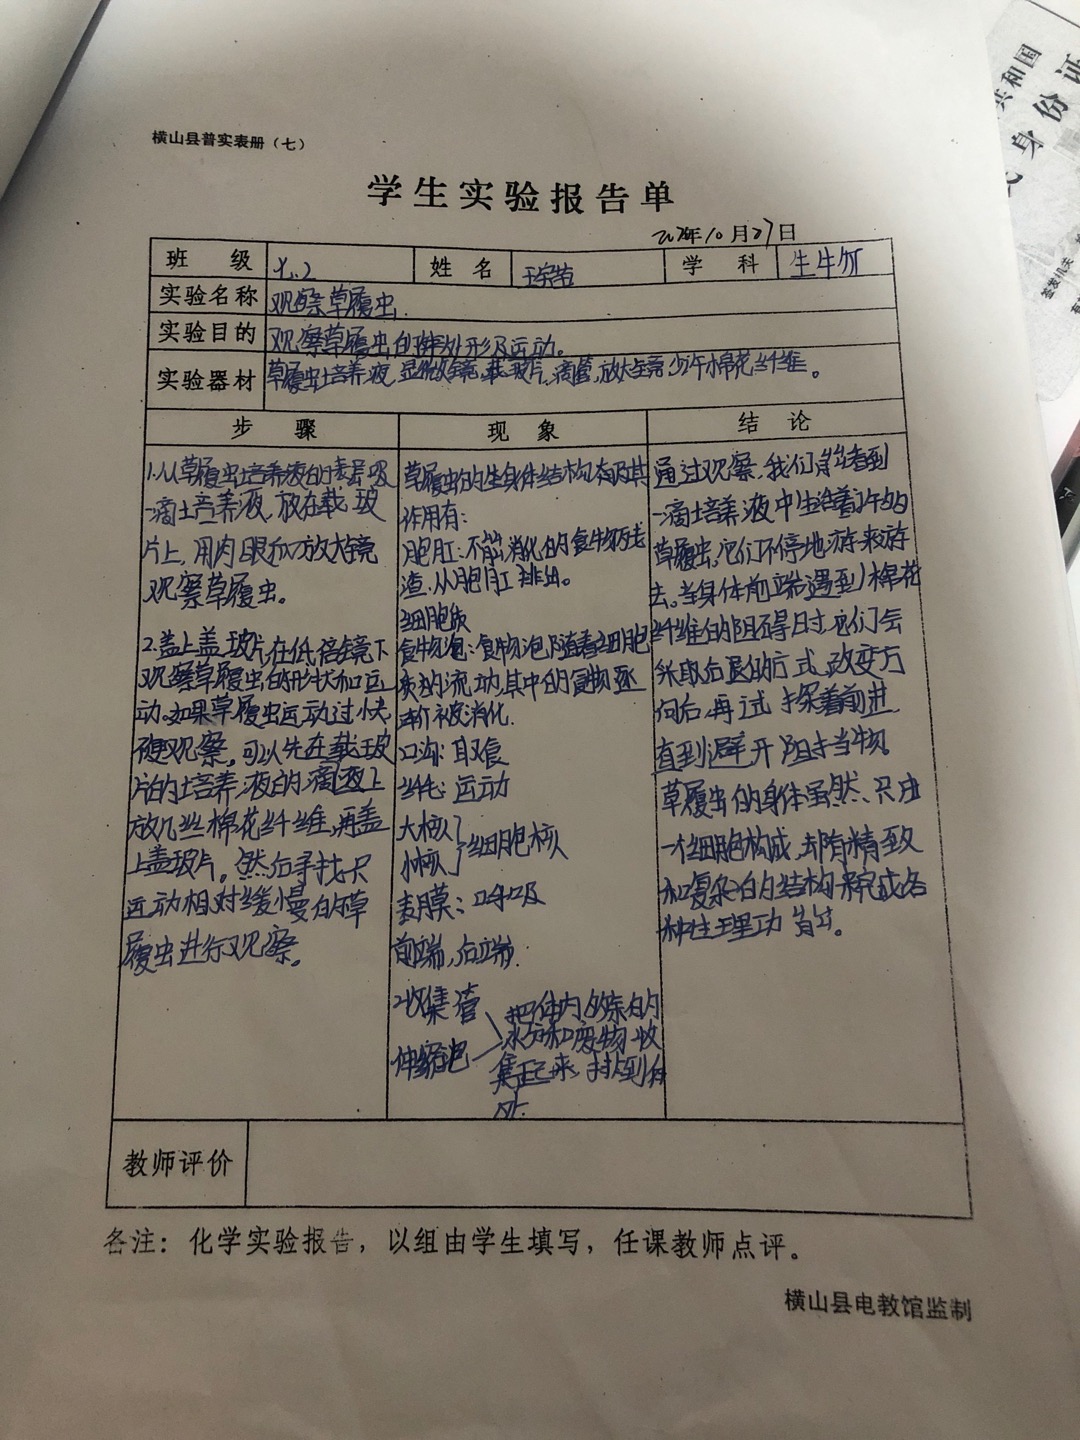 共和国
身份证
签发机关
横山县普实表册（七）
学生实验报告单
年10月27日
班 级 姓 名 学 科 生物
实验名称 观察草履虫.
实验目的 观察草履虫的外形及运动。
实验器材 草履虫培养液,显微镜,载玻片,滴管,放大镜,少许棉花纤维。
步 骤
1.从草履虫培养液的表层吸
一滴培养液,放在载玻
片上,用肉眼和放大镜
观察草履虫。
2.盖上盖玻片,在低倍镜下
观察草履虫的形状和运
动。如果草履虫运动过快,
观察。可以先在载玻
片的培养液的滴液上
放几丝棉花纤维,再盖
上盖玻片。然后寻找一只
运动相对缓慢的草
履虫进行观察。
现 象
草履虫的身体结构及其
作用有:
胞肛:不能消化的食物残
渣,从胞肛排出。
细胞质
食物泡:食物泡随着细胞
质的流动,其中的食物逐
渐被消化.
口沟:取食
纤毛:运动
大核
小核 细胞核
表膜:呼吸
前端,后端.
收集管
伸缩泡
把体内多余的
水分和废物收
集起来,排到体
外.
结 论
通过观察,我们能看到
一滴培养液中生活着许多的
草履虫,它们不停地游来游
去。当身体前端遇到棉花
纤维的阻碍时,它们会
采取后退的方式,改变方
向后,再试探着前进,
直到避开阻挡物
草履虫的身体虽然只由
一个细胞构成,却有精致
和复杂的结构来完成各
种生理功能。
教师评价
各注：化学实验报告，以组由学生填写，任课教师点评。
横山县电教馆监制